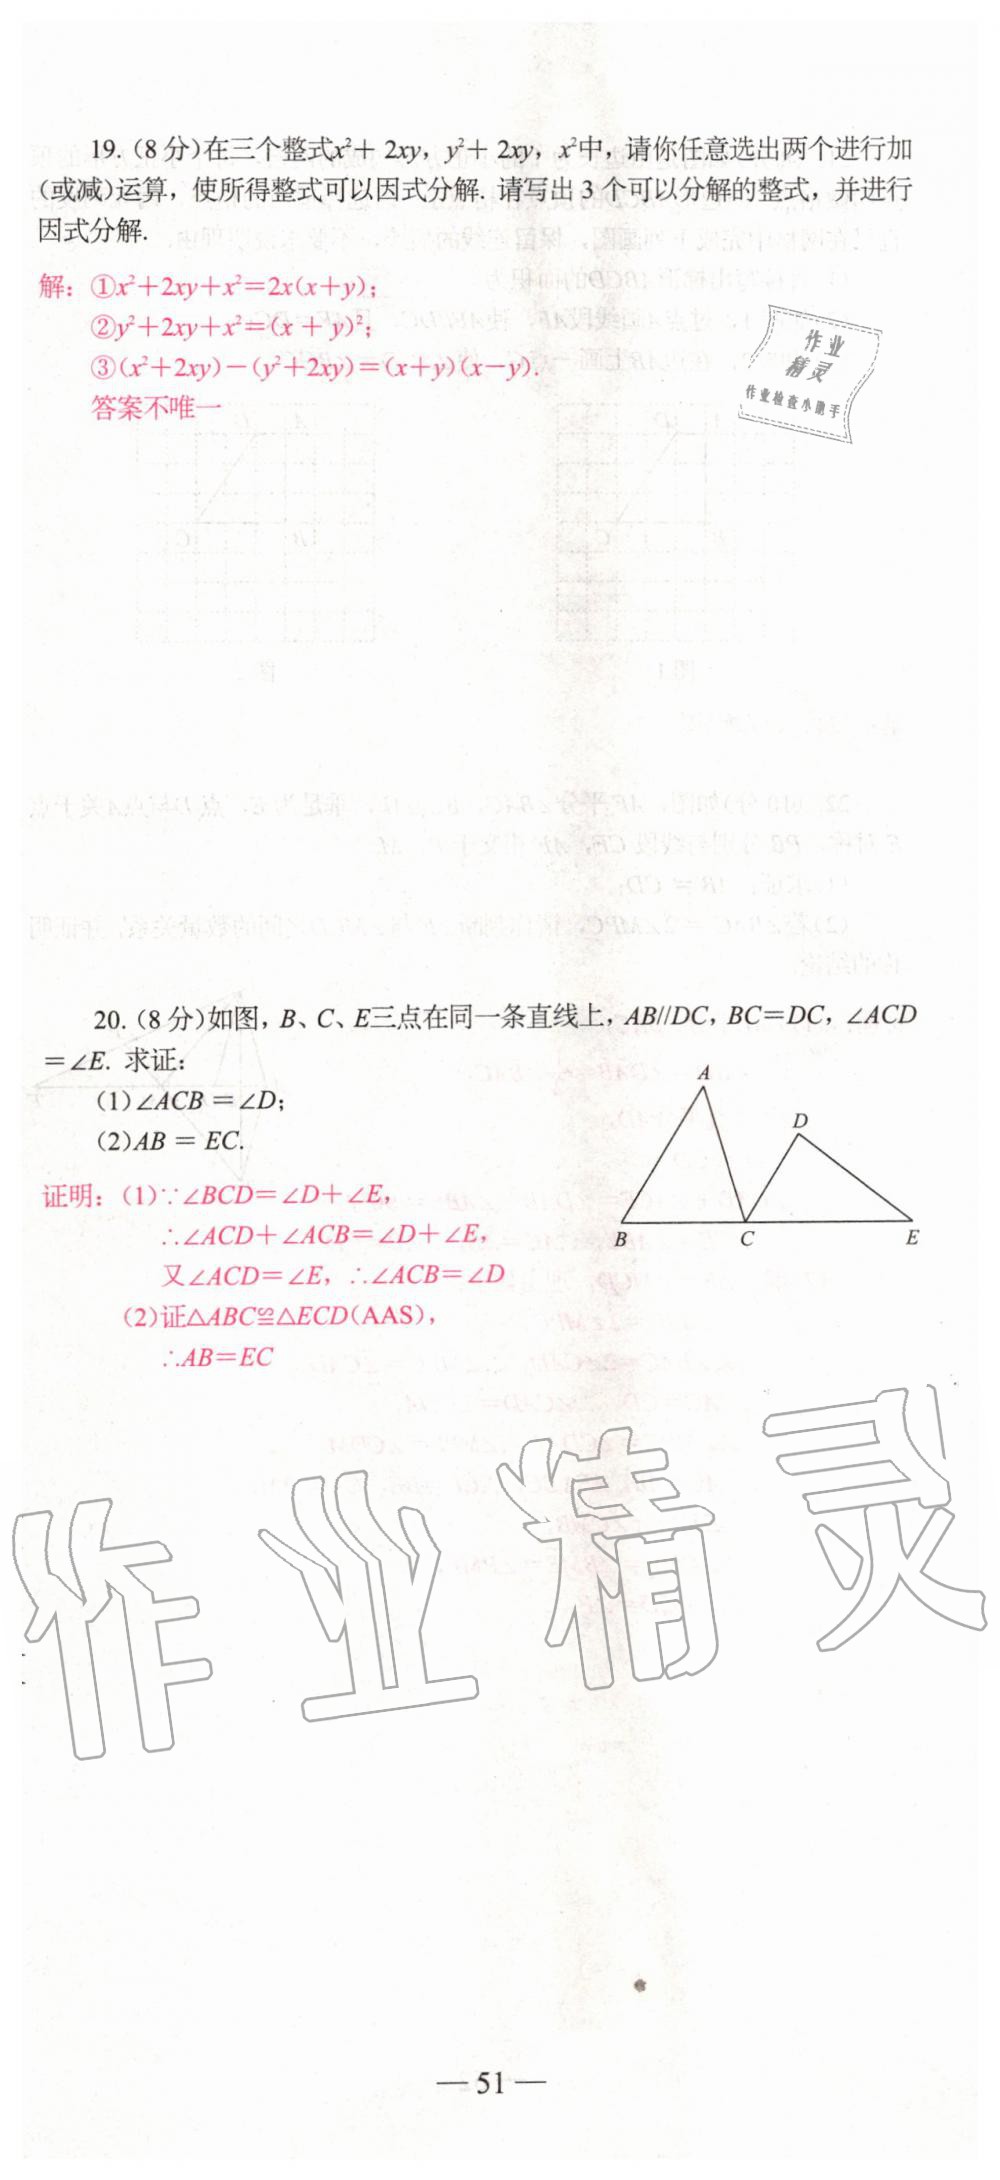 19. (8分)在三个整式x²+ 2xy, y²+ 2xy, x²中, 请你任意选出两个进行加
(或减)运算, 使所得整式可以因式分解. 请写出 3 个可以分解的整式, 并进行
因式分解.
解: ①x²+2xy+x²=2x(x+y);
②y²+2xy+x²=(x+y)²;
③(x²+2xy)-(y²+2xy)=(x+y)(x-y).
答案不唯一
作业
精灵
作业检查小助手
20. (8分)如图, B、C、E三点在同一条直线上, AB//DC, BC=DC, ∠ACD
=∠E. 求证:
(1)∠ACB=∠D;
(2)AB = EC.
A
D
B
C
E
证明: (1)∵∠BCD=∠D+∠E,
∴∠ACD+∠ACB=∠D+∠E,
又∠ACD=∠E, ∴∠ACB=∠D
(2)证△ABC≌△ECD(AAS),
∴AB=EC
作业精灵
— 51 —